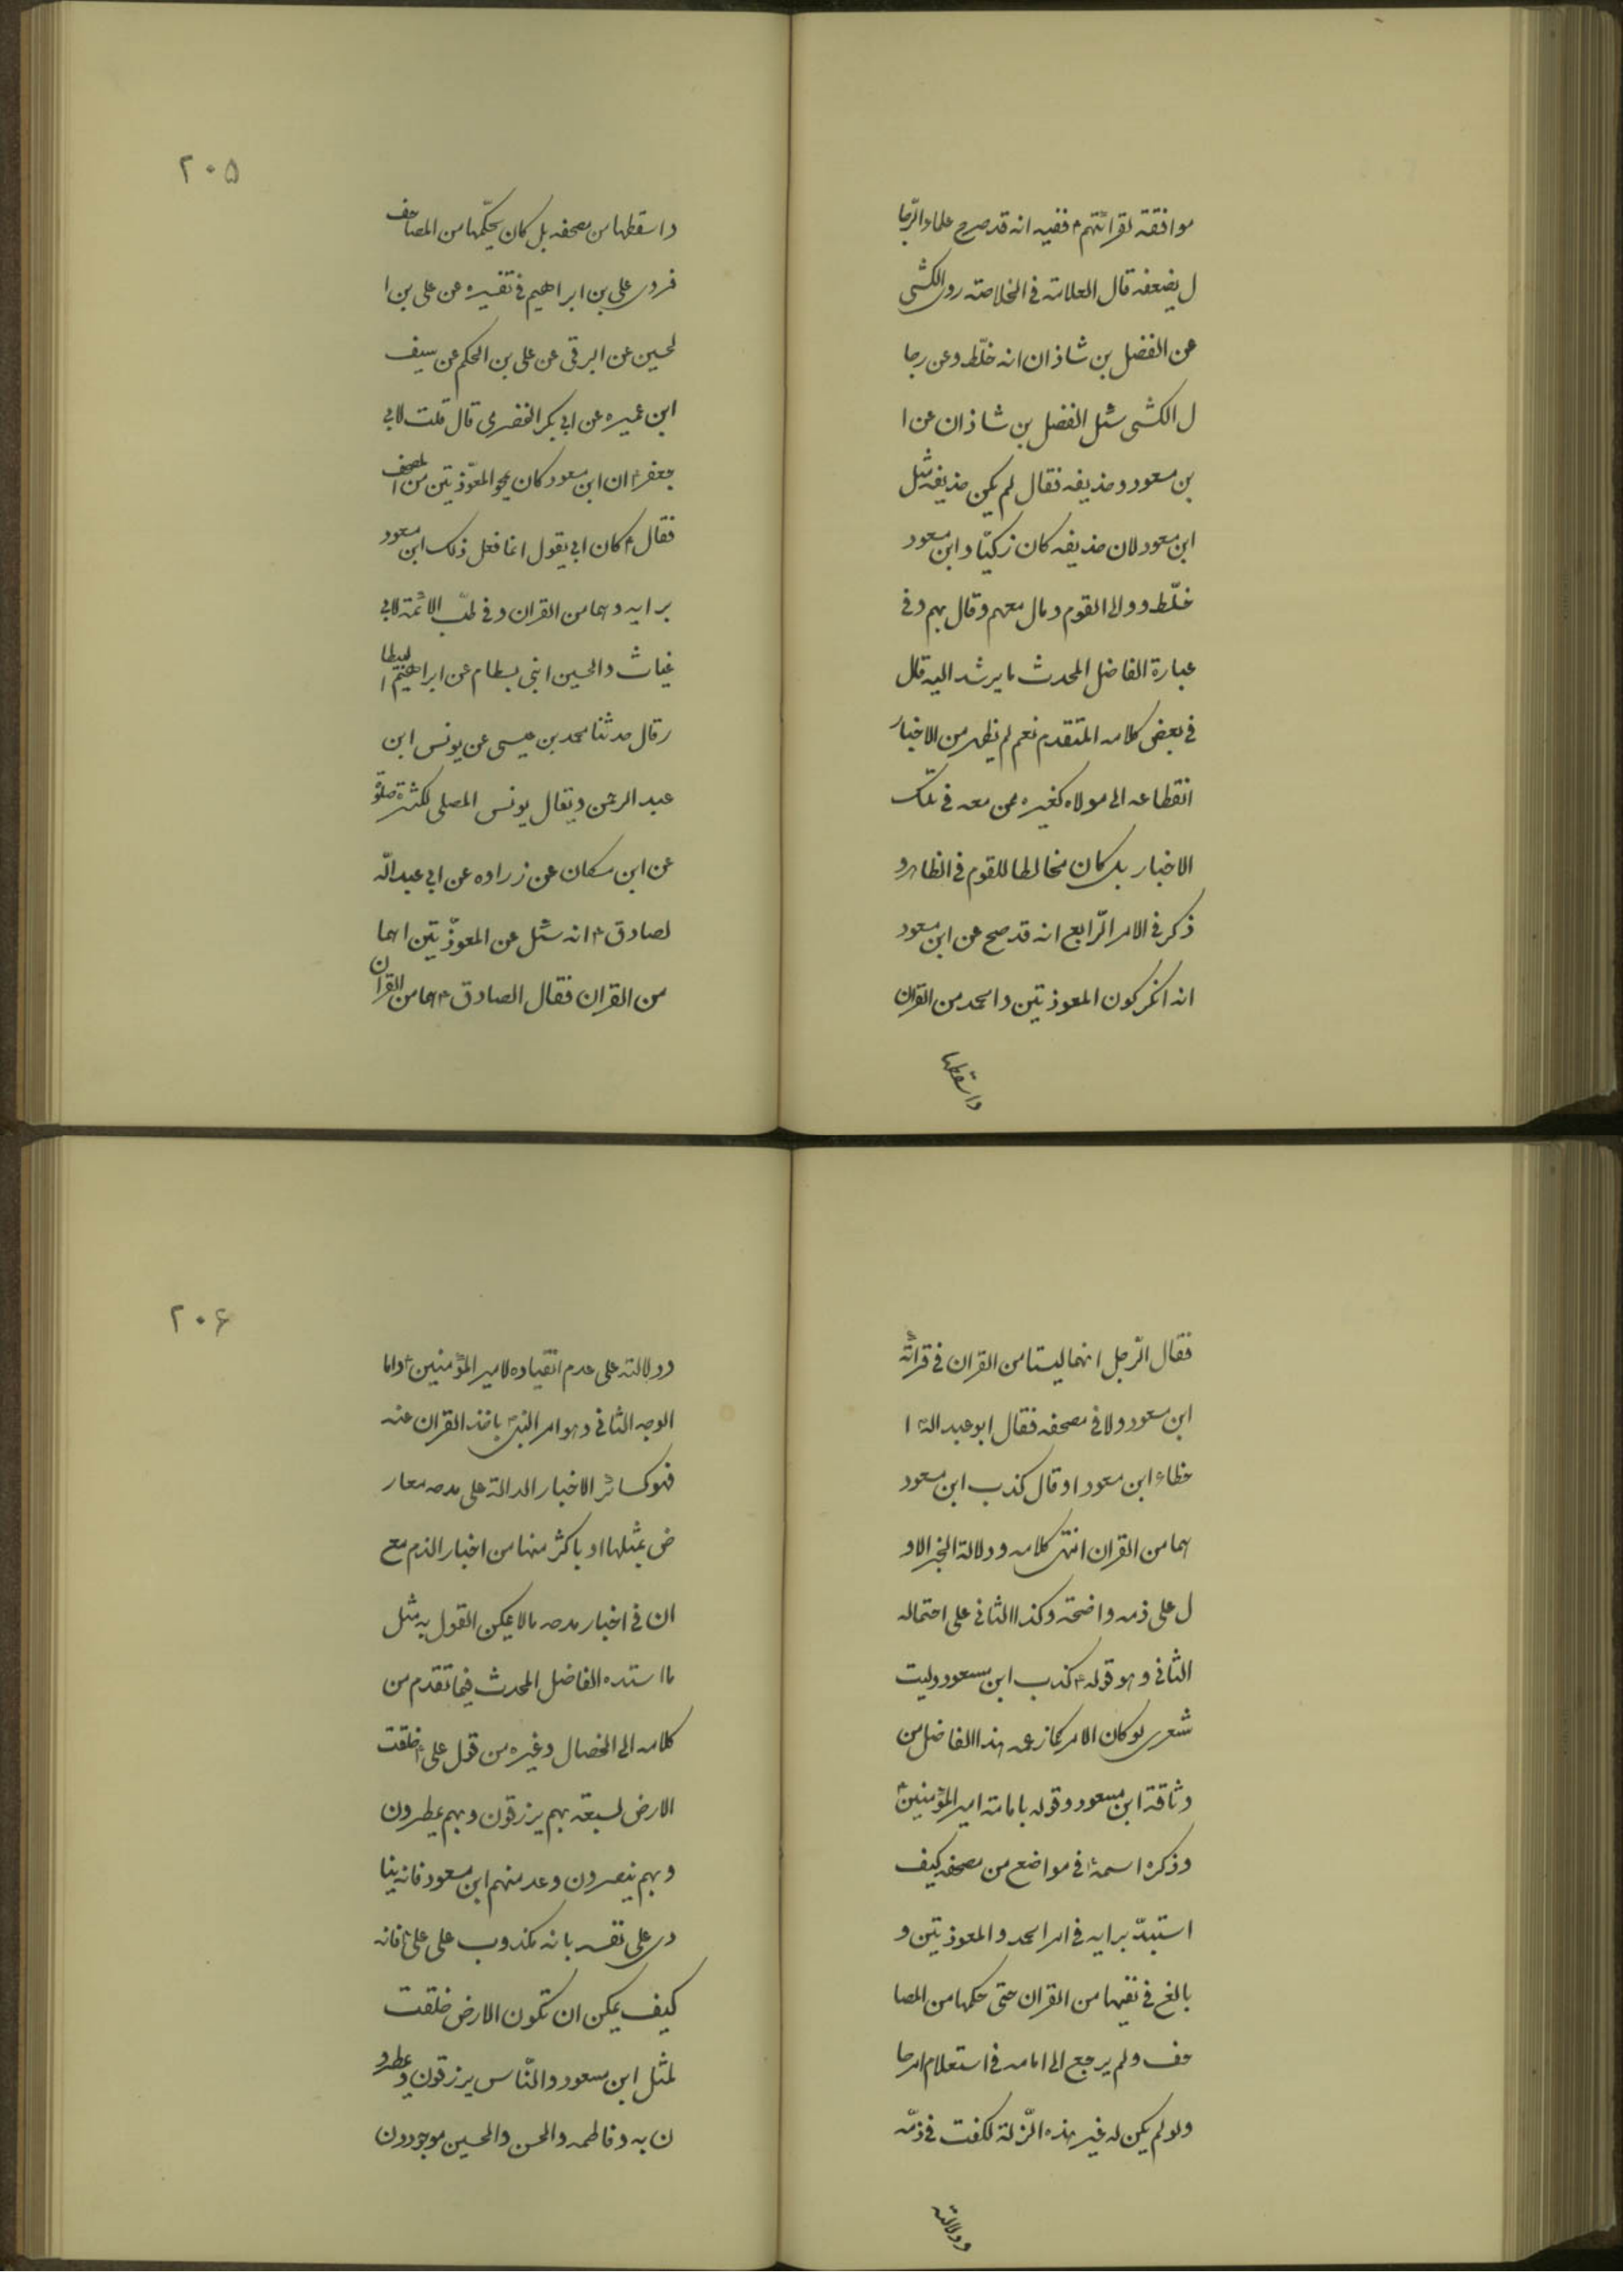 موافقة لقرائتهم ع ففيه انه قد صرح علماء الرّجا
ل بضعفه قال العلامة في الخلاصة روى الكشى
عن الفضل بن شاذان انه خلّط وعن رجا
ل الكشى سئل الفضل بن شاذان عن ا
بن مسعود وحذيفه فقال لم يكن حذيفه مثل
ابن مسعود لان حذيفه كان زكيّا وابن مسعود
خلّط ووالى القوم ومال معهم وقال بهم وفي
عبارة الفاضل المحدث ما يرشد اليه قال
في بعض كلامه المتقدم نعم لم يظهر من الاخبار
انقطاعه الى مولاه كغيره ممن معه في تلك
الاخبار بل كان مخالطا للقوم في الظاهر و
ذكر في الامر الرّابع انه قد صح عن ابن مسعود
انه انكر كون المعوذتين والحمد من القران
واسقطها
٢٠۵
واسقطها من مصحفه بل كان يحكّها من المصاحف
فروى على بن ابراهيم في تفسيره عن على بن ا
لحسين عن البرقى عن على بن الحكم عن سيف
ابن عميره عن ابي بكر الخضرمى قال قلت لابي
جعفر ع ان ابن مسعود كان يمحو المعوّذتين من المصحف
فقال ع كان ابي يقول انما فعل ذلك ابن مسعود
برايه وهما من القران وفي طبّ الائمّة لابي
غياث والحسين ابنى بسطام عن ابراهيم البيطا
ر قال حدثنا محمد بن عيسى عن يونس ابن
عبد الرحمن ويقال يونس المصلى لكثرة صلوة
عن ابن مسكان عن زراره عن ابي عبد اللّه
لصادق ع انه سئل عن المعوّذتين اهما
من القران فقال الصادق ع هما من القران
فقال الرّجل انهما ليستا من القران في قرائة
ابن مسعود ولا في مصحفه فقال ابو عبد الله ا
خطاء ابن مسعود او قال كذب ابن مسعود
هما من القران انتهى كلامه ودلالة الخبر الاو
ل على ذمه واضحة وكذا الثاني على احتماله
الثاني وهو قوله ع كذب ابن مسعود وليت
شعرى لو كان الامر كما زعمه هذا الفاضل من
وثاقة ابن مسعود وقوله بامامة امير المؤمنين ع
وذكره اسمه ع في مواضع من مصحفه كيف
استبدّ برايه في امر الحمد والمعوذتين و
بالغ في نفيها من القران حتى حكها من المصا
حف ولم يرجع الى امامه في استعلام امرها
ولو لم يكن له غير هذه الزّلة لكفت في ذمّه
ودلالته
٢٠۶
ودلالته على عدم انقياده لامير المؤمنين ع واما
الوجه الثاني وهو امر النبى ص باخذ القران عنه
فهو كسائر الاخبار الدالة على مدحه معار
ض بمثلها او باكثر منها من اخبار الذم مع
ان في اخبار مدحه ما لا يمكن القول به مثل
ما اسنده الفاضل المحدث فيما تقدم من
كلامه الى الخصال وغيره من قول على ع خلقت
الارض لسبعة بهم يرزقون وبهم يمطرون
وبهم ينصرون وعد منهم ابن مسعود فانه ينا
دى على نفسه بانه مكذوب على على ع فانه
كيف يمكن ان تكون الارض خلقت
لمثل ابن مسعود والنّاس يرزقون ويمطرو
ن به وفاطمه والحسن والحسين موجودون